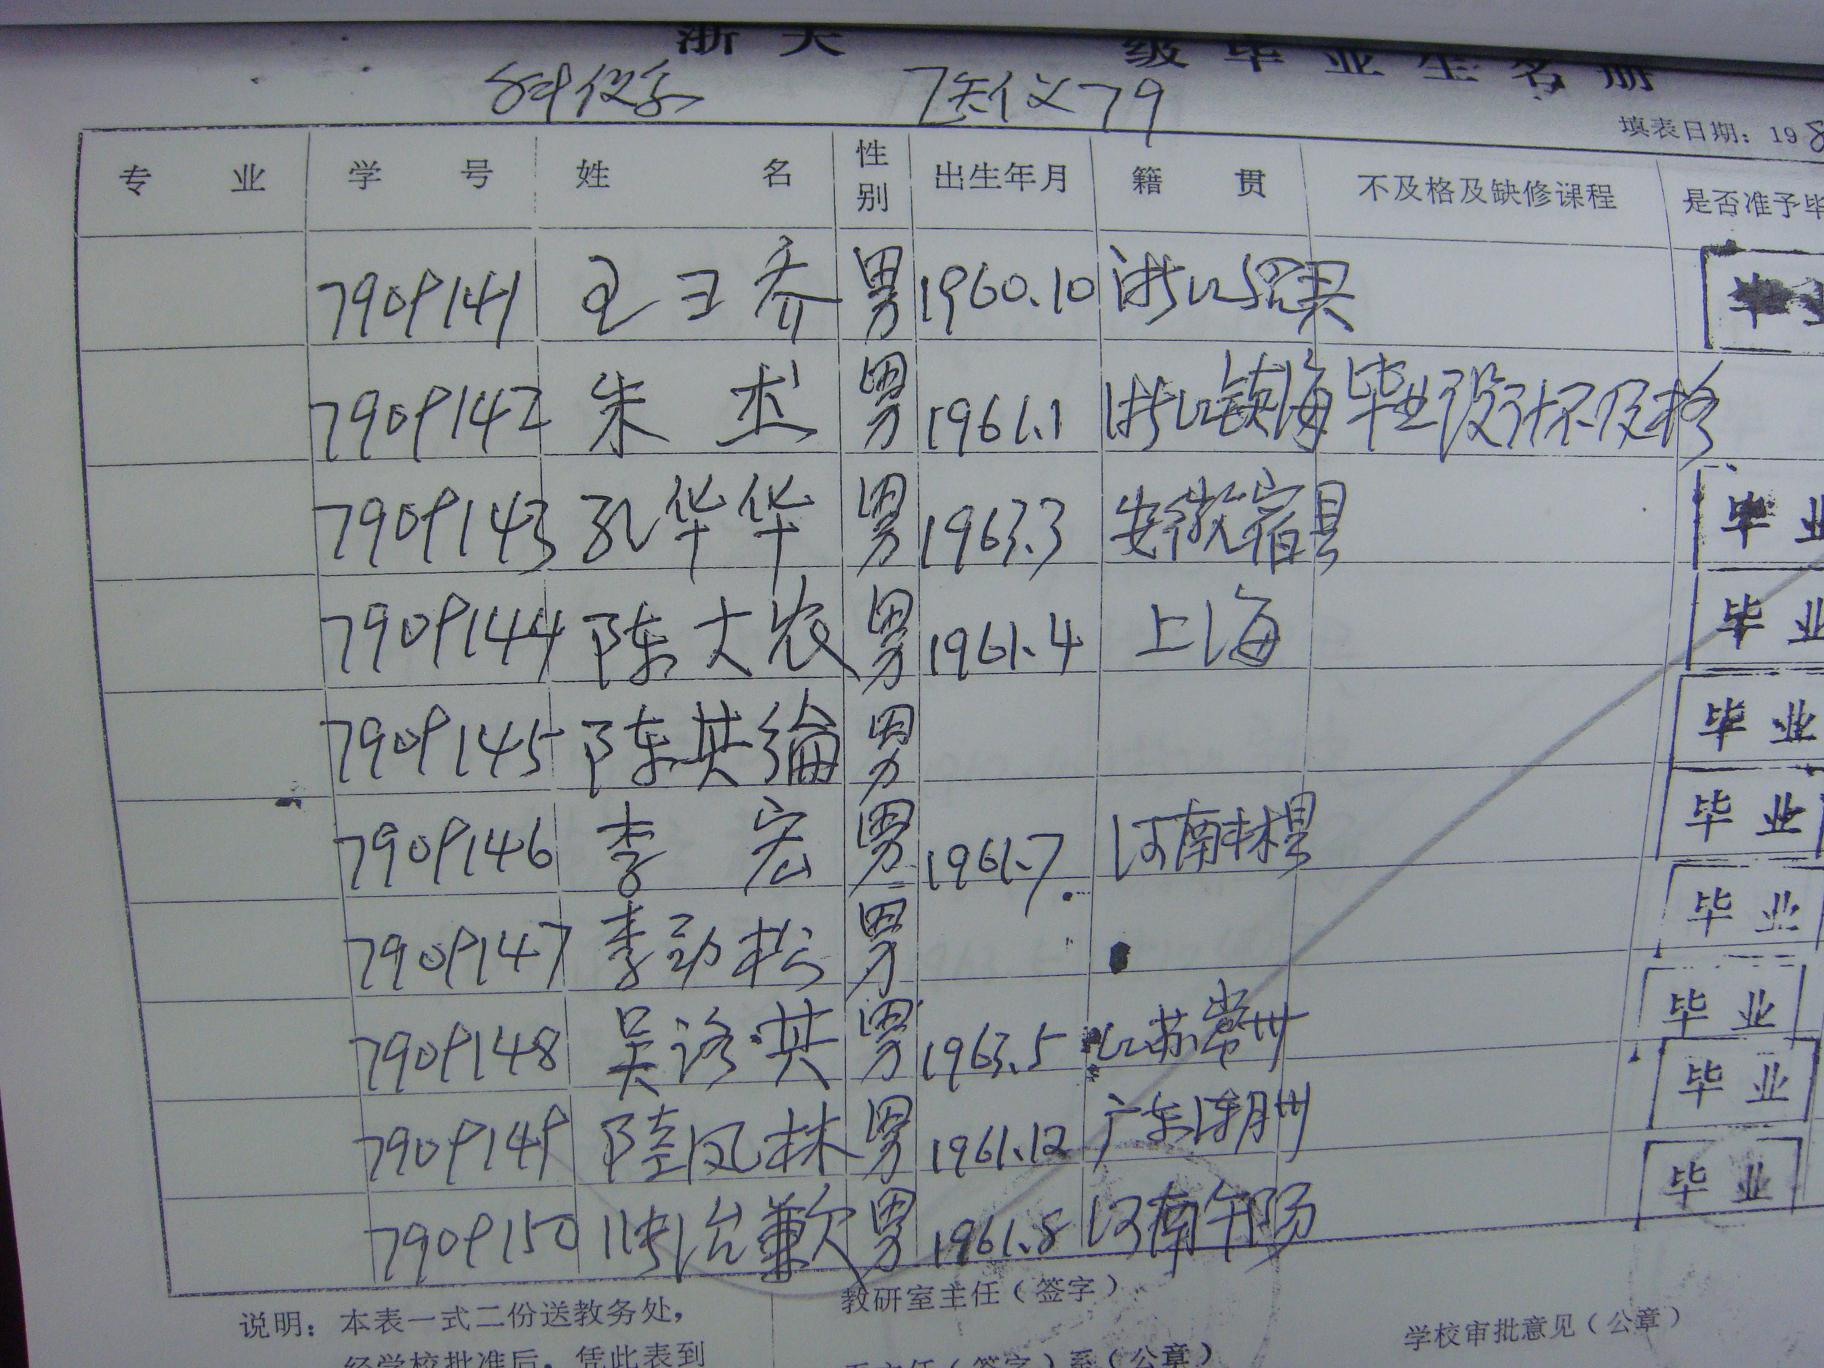 浙大 级毕业生名册
科仪系 医仪79
填表日期：198
专业 学号 姓名 性别 出生年月 籍贯 不及格及缺修课程 是否准予毕
7909141 王卫乔 男 1960.10 浙江 毕业
7909142 朱杰 男 1961.1 浙江镇海 毕业设计不及格
7909143 孔华华 男 1963.3 安徽宿县 毕业
7909144 陈大农 男 1961.4 上海 毕业
7909145 陈其 男 毕业
7909146 李宏 男 1961.7 河南林县 毕业
7909147 李劲松 男 毕业
7909148 吴洛洪 男 1963.5 江苏常州 毕业
7909149 陆凤林 男 1961.12 广东潮州 毕业
7909150 男 1961.8 河南 毕业
说明：本表一式二份送教务处， 教研室主任（签字） 学校审批意见（公章）
经学校批准后，凭此表到 系主任（签字）系（公章）